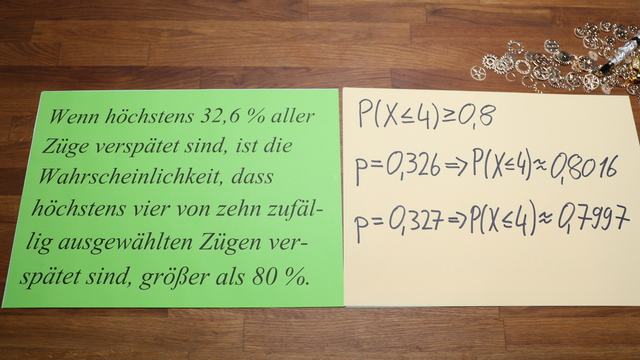 Wenn höchstens 32,6 % aller
Züge verspätet sind, ist die
Wahrscheinlichkeit, dass
höchstens vier von zehn zufäl-
lig ausgewählten Zügen ver-
spätet sind, größer als 80 %.
P(X≤4)≥0,8
p=0,326⇒P(X≤4)≈0,8016
p=0,327⇒P(X≤4)≈0,7997